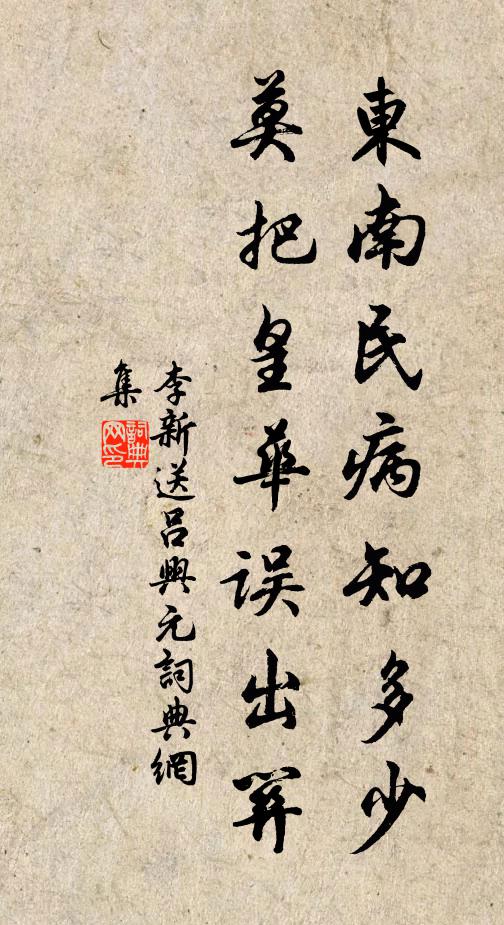 東南民病知多少
莫把皇華誤出關
李新送呂興元詞典網
集
詞典
网印